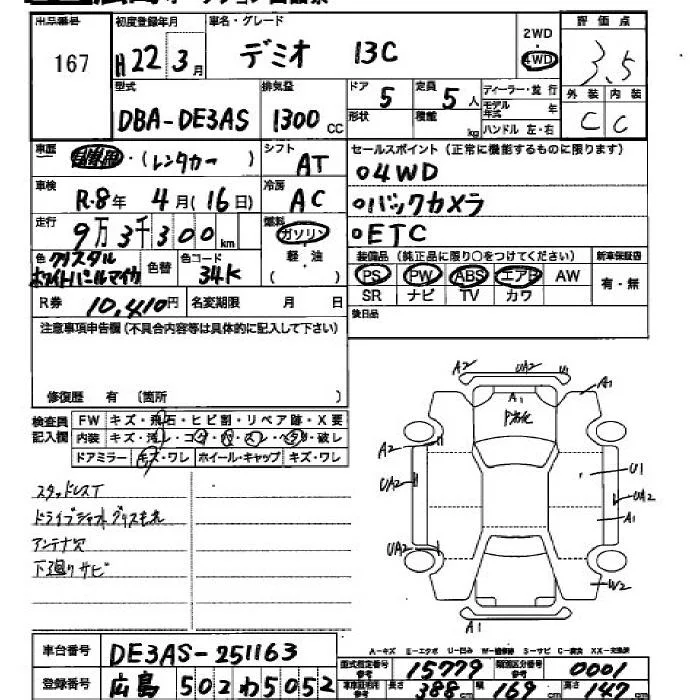 出品番号 167
初度登録年月 H22年 3月
車名・グレード デミオ 13C
2WD・4WD
評価点 3.5
外装 C 内装 C
型式 DBA-DE3AS
排気量 1300cc
ドア 5 形状
定員 5人 積載 kg
ディーラー・並行
モデル年式 年
ハンドル 左・右
車歴 自家用・(レンタカー)
シフト AT
車検 R.8年 4月(16日)
冷房 AC
走行 9万3千300km
燃料 ガソリン 軽油 ( )
色 クリスタルホワイトパールマイカ 色替
色コード 34K
R券 10,410円 名変期限 月 日
セールスポイント(正常に機能するものに限ります)
○4WD
○バックカメラ
○ETC
装備品(純正品に限り○をつけてください) 新車保証書
PS PW ABS エアB AW 有・無
SR ナビ TV カワ
後日品
注意事項申告欄(不具合内容等は具体的に記入して下さい)
修復歴 有 〔箇所 〕
検査員記入欄
FW キズ・飛石・ヒビ割・リペア跡・X要
内装 キズ・汚レ・コゲ・穴・スレ・ヘタリ・破レ
ドアミラー キズ・ワレ ホイール・キャップ キズ・ワレ
スタッドレスT
ドライブシャフトグリスモレ
アンテナ欠
下廻りサビ
A2 UA2 U1
A1
A1
A2
UA2
UA2
U1
UA2
A1
W2
A1
A-キズ E-エクボ U-凹み W-補修跡 S-サビ C-腐食 XX-交換済
車台番号 DE3AS-251163
登録番号 広島 502わ5052
型式指定番号 参考 15779 類別区分番号 参考 0001
車庫証明用 参考 長さ 388cm 幅 169cm 高さ 147cm